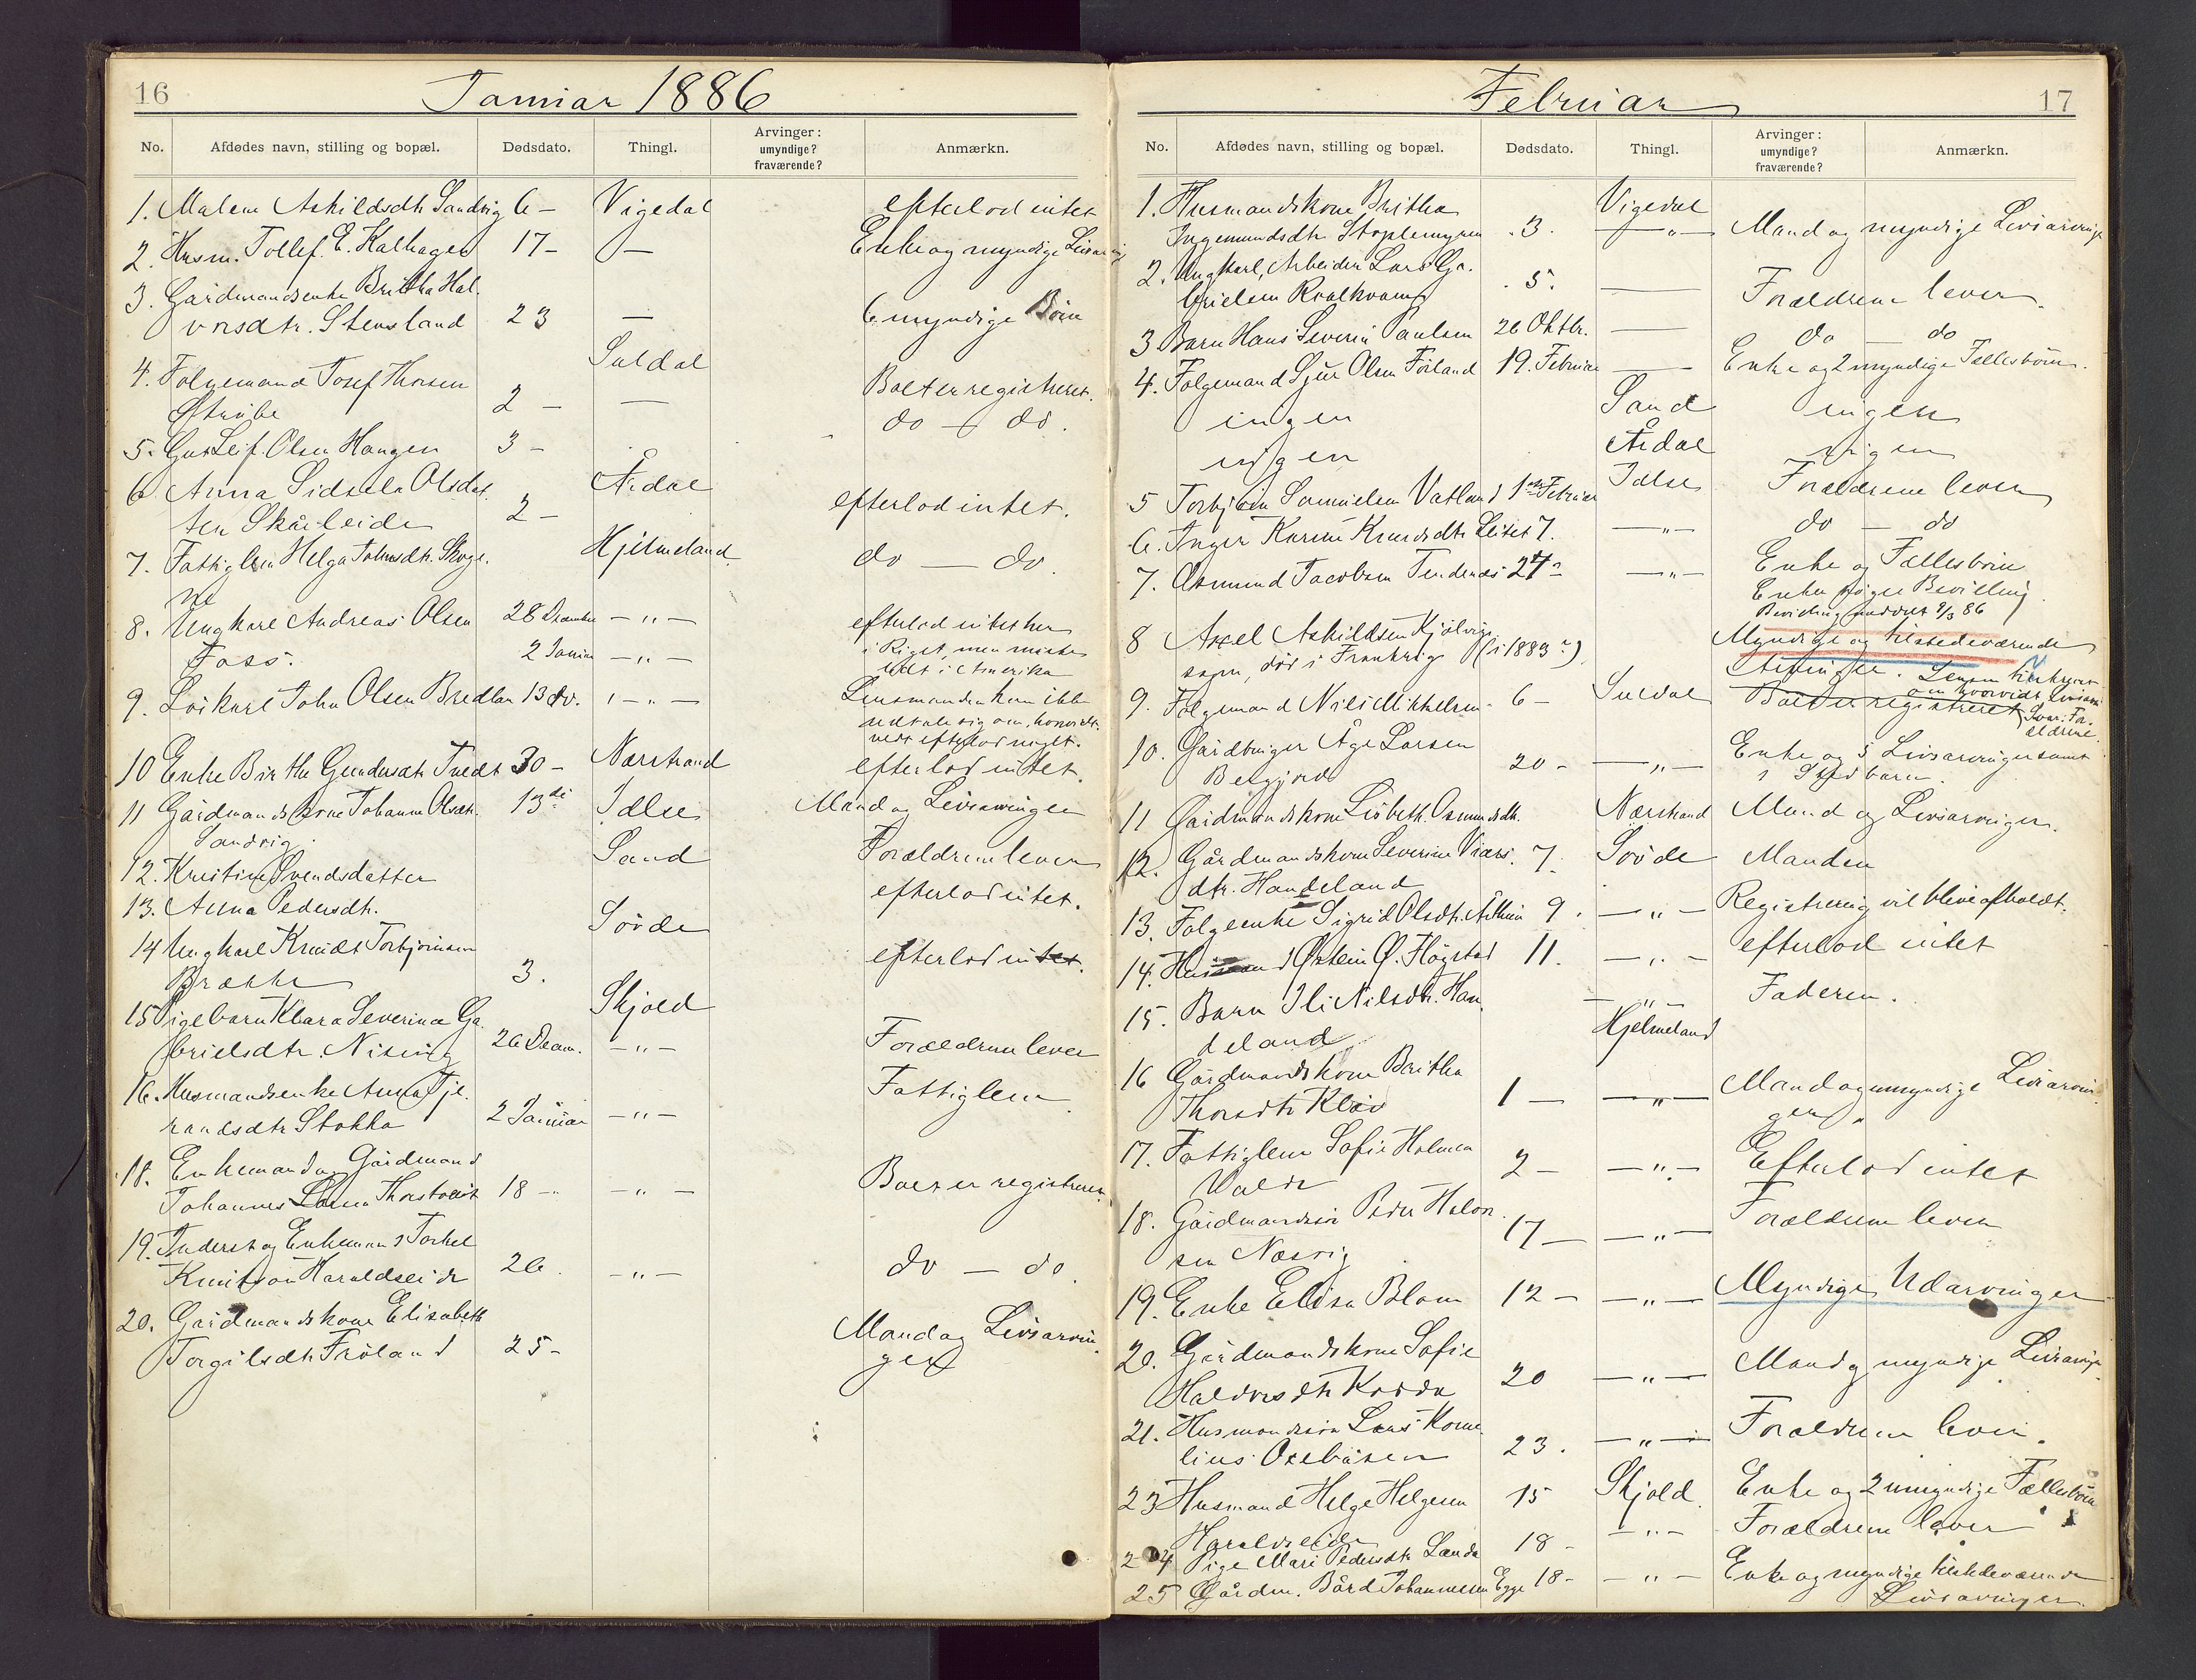 16
Januar 1886
No.
Afdødes navn, stilling og bopæl.
Dødsdato.
Thingl.
Arvinger:
umyndige?
fraværende?
Anmærkn.
1. Malene Askildsdtr Sandvig 6 – Vigedal efterlod intet
2. Husm. Tollef E. Kalhagen 17 – — Enke og myndige Livsarving
3. Gårdmandsenke Britha Hal-
vorsdtr. Stensland 23 — 6 myndige Børn
Suldal
4. Følgemand Josef Thorsen
2 – — Boet er registreret.
5. Leif Olsen Haugen 3 – do – do.
6 Anna Sidsela Olsdat
ter Skårleide 2 – Årdal efterlod intet.
7. Fattiglem Helga Johnsdtr. Skoge.
ne Hjelmeland do — do.
8. Ungkarl Andreas Olsen 28 December — " — efterlod intet her
Foss. 2 Januar — " — i Riget, men midler
i Amerika
9. Løskarl John Olsen Bredlan 13 do. — " — Lensmanden kan ikke
udtale sig om, hvorvidt
efterlod noget.
10 Enke Birthe Gundersdtr Tvedt 30 – Nærstrand efterlod intet.
11 Gårdmandskone Johanne Olsdtr. 13de Idlse Mand og Livsarvinger
Sandvig.
12. Kristine Svendsdatter Sand Forældrene lever
13. Anna Pedersdtr. efterlod intet.
Søvde
14 Ungkarl Knudt Torbjørnsen
Brække 3. efterlod intet.
Skjold
15 Pigebarn Klara Severina Ga
brielsdtr. Nising 26 Decem. — " — Forældrene lever
16. Husmandsenke Anna Tje-
randsdtr Stokka 2 Januar — " — Fattiglem
18. Enkemand og Gårdmand
Johannes Larsen Thorstveit 18 – — " — Boet er registreret.
19. Inderst og Enkemand Torkel
Knutson Haraldseide 26. — " — do — do.
20. Gårdmandskone Elisabeth
Torgilsdtr Frøland 25 – Mand og Livsarvin-
ger
17
Februar
No.
Afdødes navn, stilling og bopæl.
Dødsdato.
Thingl.
Arvinger:
umyndige?
fraværende?
Anmærkn.
1. Husmandskone Britha Vigedal
Ingemundsdtr Stoplemyren 3. — " — Mand og myndige Livsarvinger
2. Ungkarl, Arbeider Lars Ga-
brielsen 5. — Forældrene lever.
3 Barn Hans Severin Paulsen 26 Oktbr. — do — do
4. Følgemand Sjur Olsen Førland 19. Februar — Enke og 2 myndige Fællesbørn.
ingen Sand ingen
ingen Årdal ingen
5 Torbjørn Samuelsen Vatland 1ste Februar Idlse Forældrene lever
6. Inger Karine Knudsdtr Leitet 7. — " — do — do
7. Asmund Jacobsen Tendenes 27 – — " — Enke og Fællesbørn
Enken søger Bevilling
Bevilling 9/3 86
8 Axel Askildsen Kjølvig Myndige og tilstedeværende
søm, død i Frankrig (i 1883?) Arvinger.
9. Følgemand Nils Mikkelsen 6 – Suldal Boet er registreret
10. Gårdbruger Åge Larsen Enke og 5 Livsarvinger samt
20 – — " — 1 Stedbarn.
11 Gårdmandskone Lisbeth Osmundsdtr. Nærstrand Mand og Livsarvinger.
12. Gårdmandskone Severine
dtr. Handeland 7. Søvde Manden
13. Følgeenke Sigrid Olsdtr. 9. — " — Registrering vil blive afholdt.
14. Husmand Østein Ø. Fløgstad 11. — " — efterlod intet
15. Barn Ili Nilsdtr. Han
deland — " — Faderen.
Hjelmeland
16 Gårdmandskone Britha
Thorsdtr Kløv 1 — — " — Mand og umyndige Livsarvin-
ger
17. Fattiglem Sofie Holmen
Valde 2 – — " — Efterlod intet
18. Gårdmandssøn Peder Halvor
sen Næsvig 17 — — " — Forældrene lever
19. Enke Elisa Blom 12 – — " — Myndige Udarvinger
20. Gårdmandskone Sofie
Haldorsdtr 20 — " — Mand og myndige Livsarvinger
21. Husmandssøn Lars Korne
lius Oxebåsen 23. — " — Forældrene lever.
23 Husmand Helge Helgesen 15 Skjold. Enke og 2 umyndige Fællesbørn
Haraldseide
24 Pige Mari Pedersdtr Landa 18 – — " — Forældrene lever
25 Gårdm. Bård Johannessen Egge 18 – — " — Enke og myndige tilstedeværende
Livsarvinger.